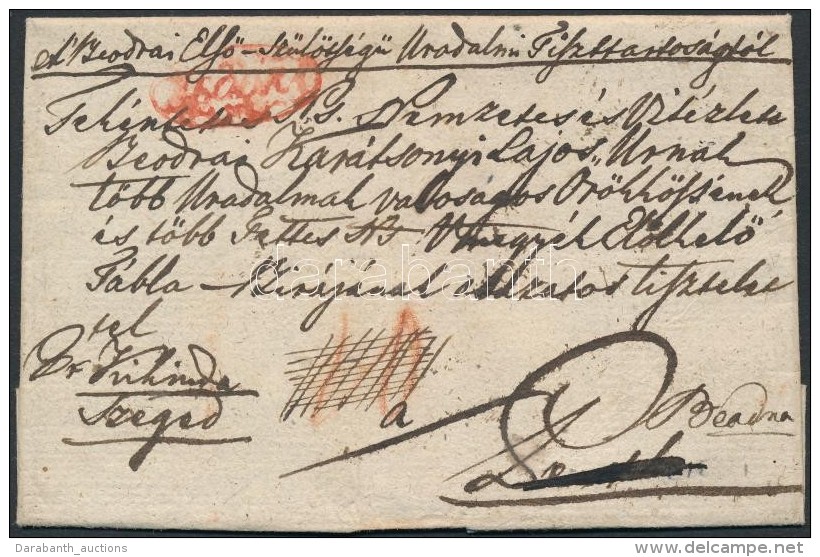 A' Beodrai Első-Szülöttségű Uradalmi Tiszttartóságtól
Tekéntetes N.G. Nemzetes és Vitézlete
Beodrai Karátsonyi Lajos Urnak
több Uradalmak valóságos Örökkössének
és több Tettes Ns Vmegyék Előkelő
Tábla-Birájának alázatos tisztelet
tel
Kikinda
Szeged
a
Beodra
darabanth
Darabanth_auctions
www.delcampe.net